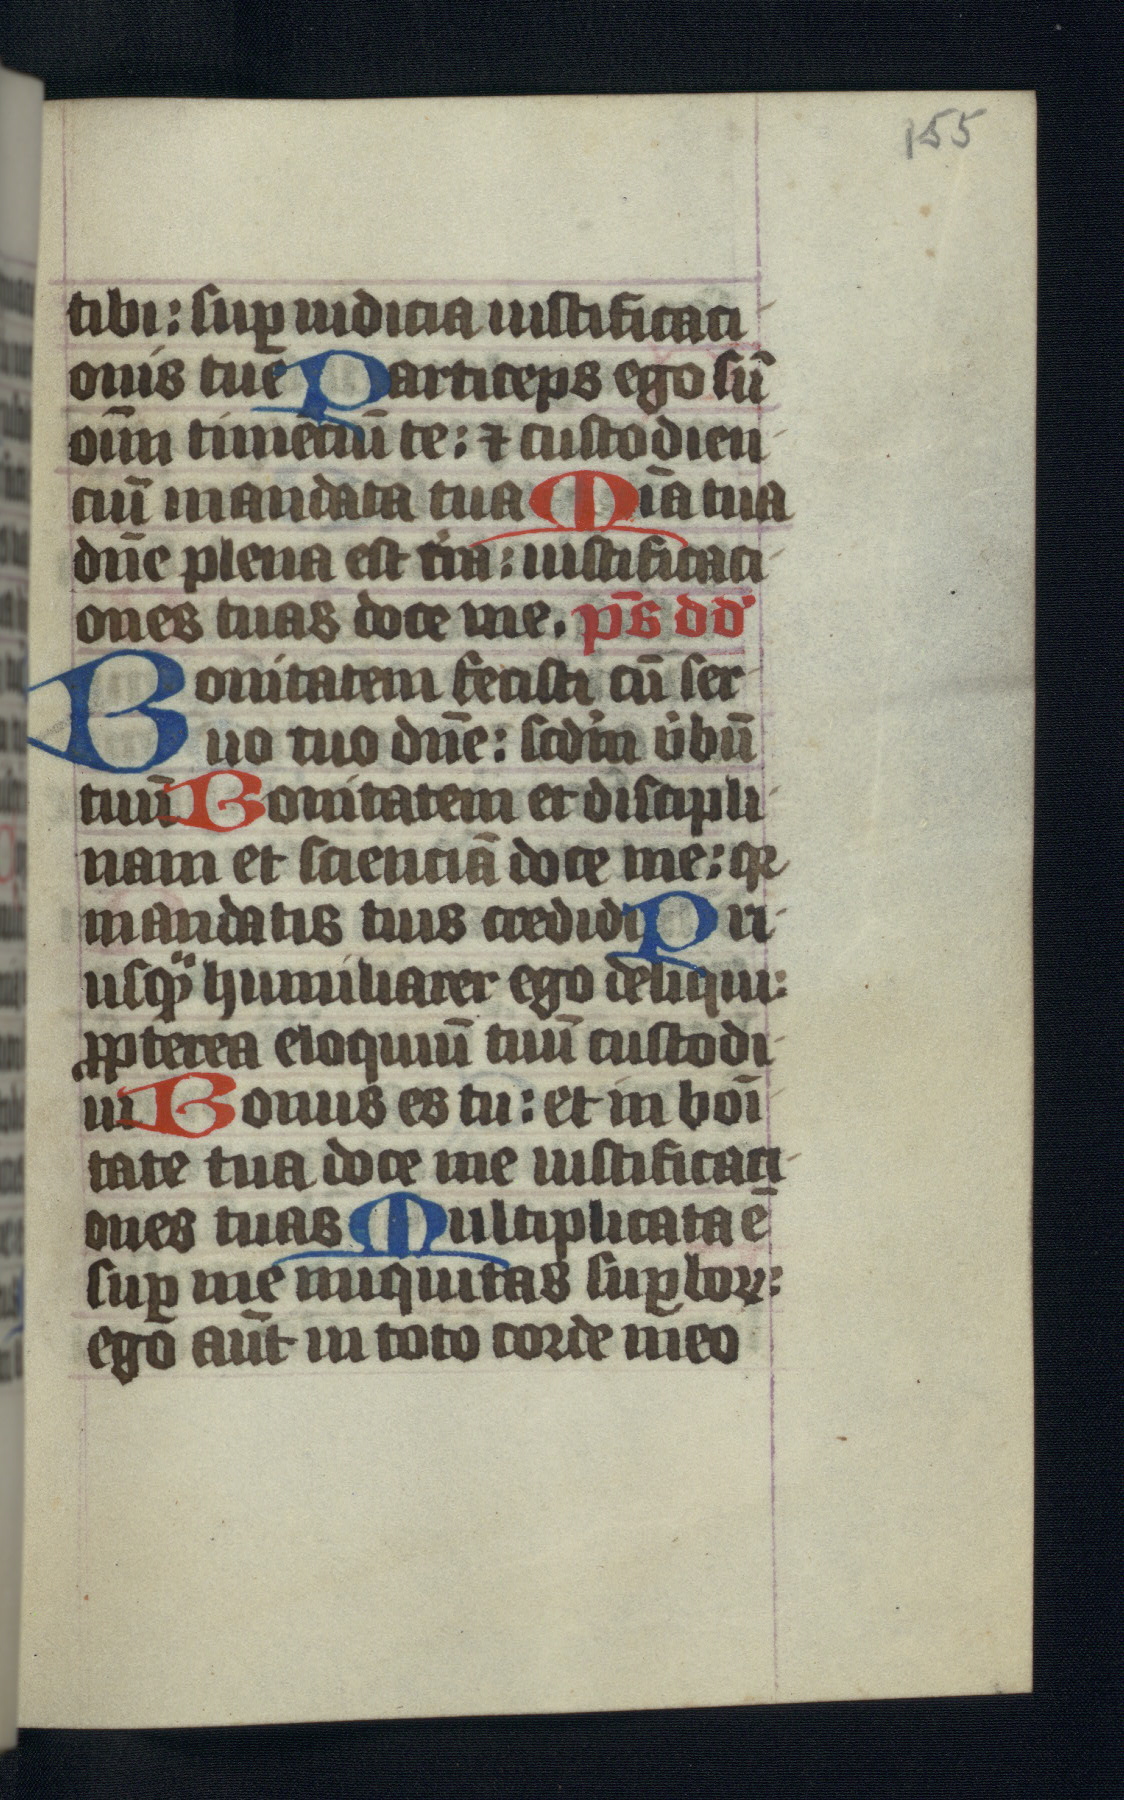 155
tibi: sup̱ iudicia iustificaci
onis tue Particeps ego sū
oīm timēciū te: ⁊ custodien
ciū mandata tua Mīa tua
dn̄e plena est tr̄a: iustificaci
ones tuas doce me. ps̄ dd
Bonitatem fecisti cū ser
uo tuo dn̄e: scd̄m v̓bū
tuū Bonitatem et discipli
nam et scienciā doce me: qꝛ
mandatis tuis credidi Pri
usqͣ humiliarer ego deliqui:
ꝓpterea eloquiū tuū custodi
ui Bonus es tu: et in boī
tate tua doce me iustificaci
ones tuas Multiplicata ē
suꝑ me iniquitas suꝑboꝝ:
ego aūt in toto corde meo